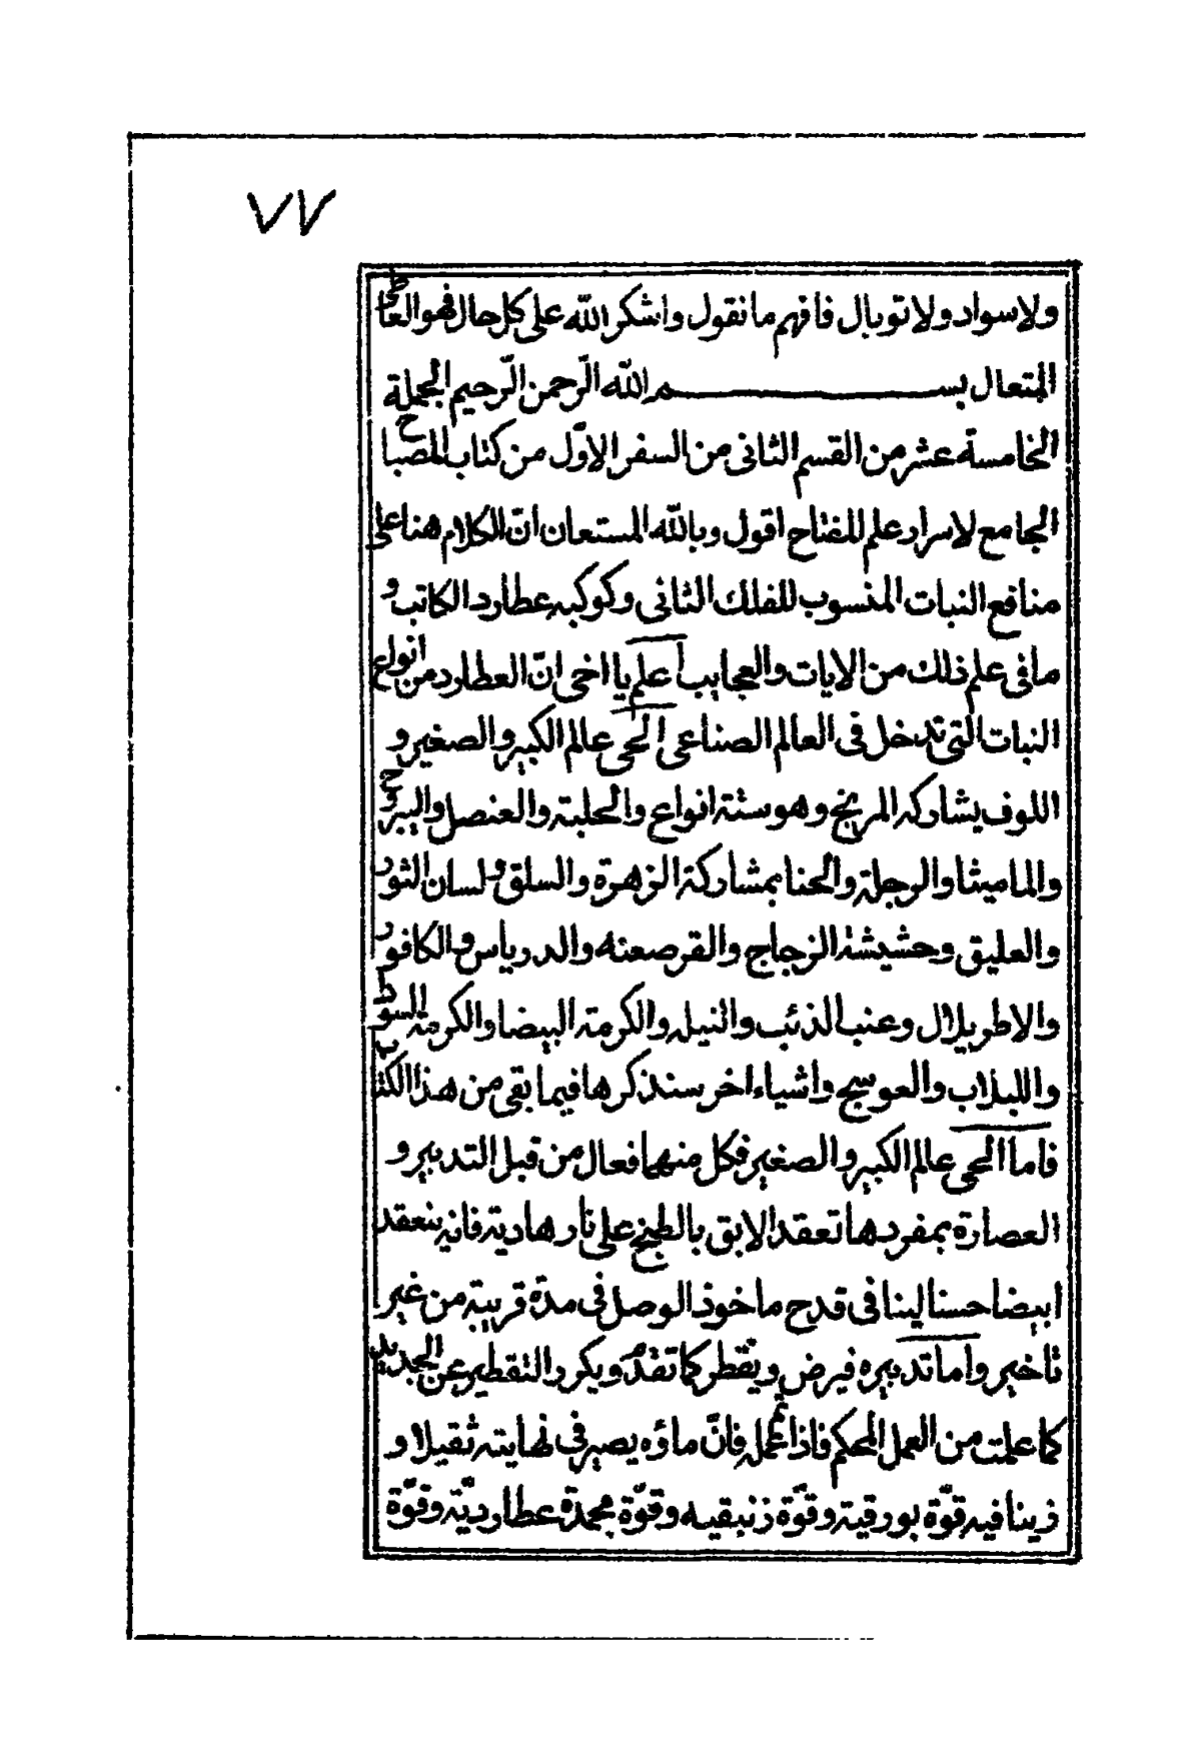 ٧٧
ولا سواد ولا توبال فافهم ما نقول واشكر الله على كل حال فهو العاطى
المتعال بسم الله الرّحمن الرّحيم الجملة
الخامسة عشر من القسم الثانى من السفر الاوّل من كتاب المصباح
الجامع لاسرار علم المفتاح اقول وبالله المستعان انّ الكلام هنا على
منافع النبات المنسوب للفلك الثانى وكوكبه عطارد الكاتب و
ما فى علم ذلك من الايات والعجايب أعلم يا اخى انّ العطارد من انواع
النبات التى تدخل فى العالم الصناعى الحى عالم الكبير والصغير و
اللوف يشاركه المريخ وهو ستة انواع والحلبة والعنصل واليبروح
والماميثا والرجلة والحنا بمشاركة الزهرة والسلق ولسان الثور
والعليق وحشيشة الزجاج والقرصعنه والدرياس والكافور
والاطريلال وعنب الذئب والنيله والكرمة البيضا والكرمة السوطا
واللبلاب والعوسج واشياء اخر سنذكرها فيما بقى من هذا الكتاب
فاما الحى عالم الكبير والصغير فكل منهما فعال من قبل التدبير و
العصارة بمفردها تعقد الابق بالطبخ على نار هادية فانه ينعقد
ابيضا حسنا لينا فى قدح ماخوذ الوصل فى مدة قريبة من غير
تاخير وأما تدبيره فيرض ويقطر كما تقدّم ويكرر التقطير عن الجديد
كما علمت من العمل المحكم فاذا عمل فانّ ماؤه يصير فى نهايته ثقيلا و
زينا فيه قوّة بورقية وقوّة زئبقيه وقوّة مجمدة عطارديّة وقوّة